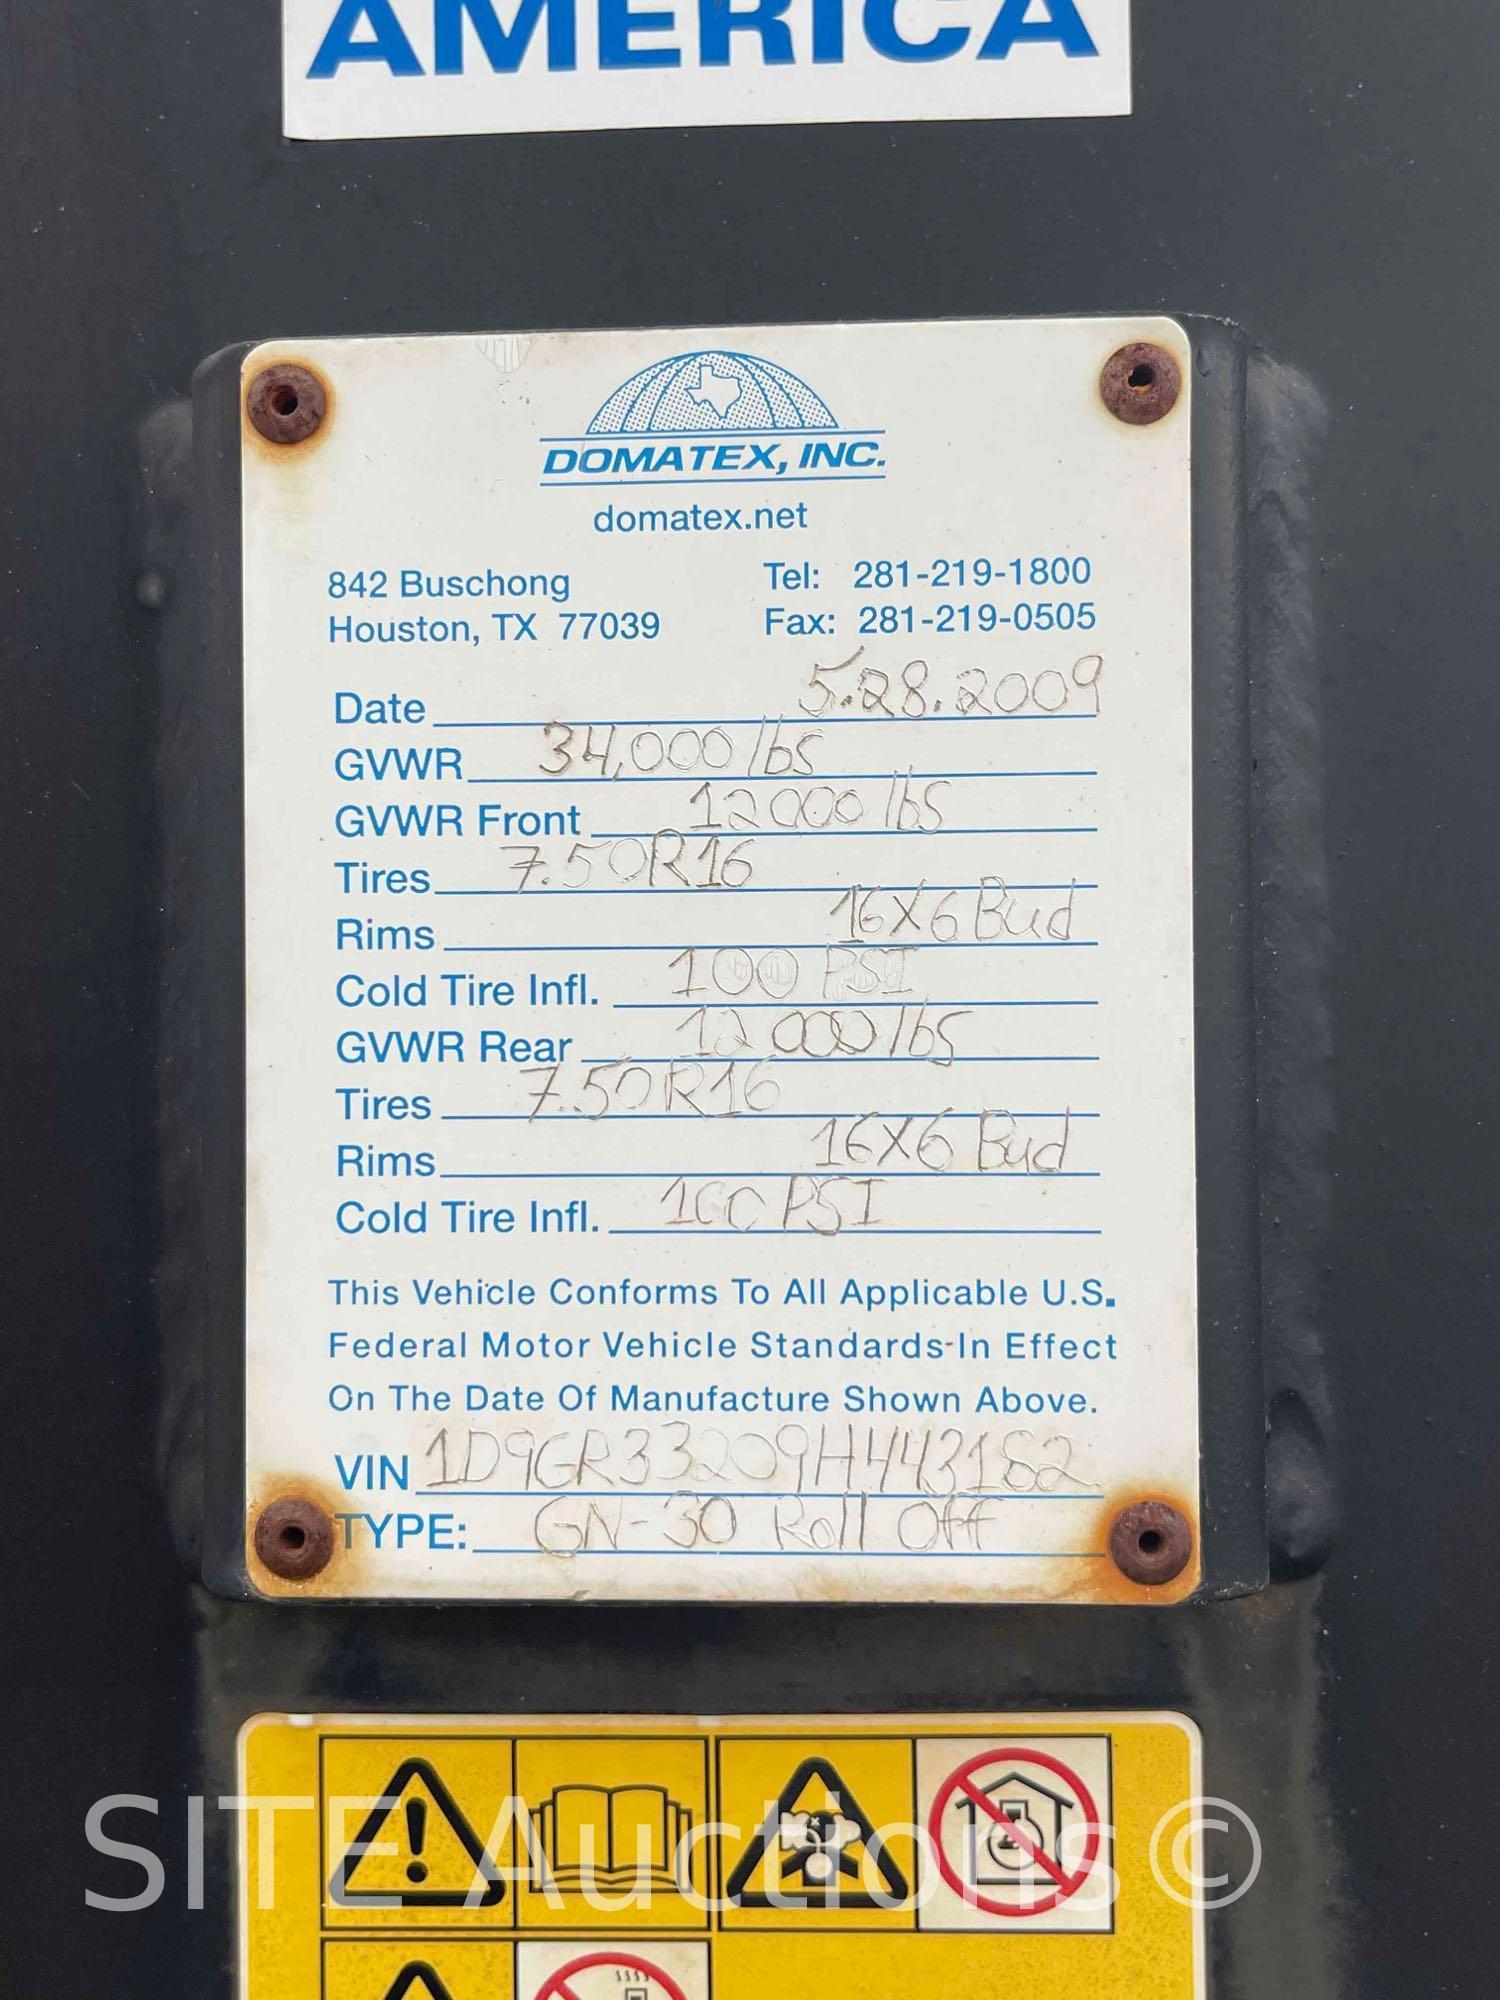 AMERICA
DOMATEX, INC.
domatex.net
842 Buschong
Houston, TX 77039
Tel: 281-219-1800
Fax: 281-219-0505
Date 5.28.2009
GVWR 34,000 lbs
GVWR Front 12000 lbs
Tires 7.50R16
Rims 16X6 Bud
Cold Tire Infl. 100 PSI
GVWR Rear 12000 lbs
Tires 7.50R16
Rims 16X6 Bud
Cold Tire Infl. 100 PSI
This Vehicle Conforms To All Applicable U.S.
Federal Motor Vehicle Standards-In Effect
On The Date Of Manufacture Shown Above.
VIN 1D9GR33209H443182
TYPE: GN-30 Roll Off
SITE Auctions©